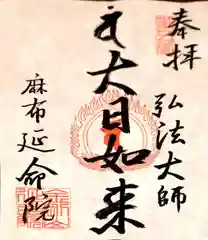 奉拝
弘法大師
大日如来
麻布延命院